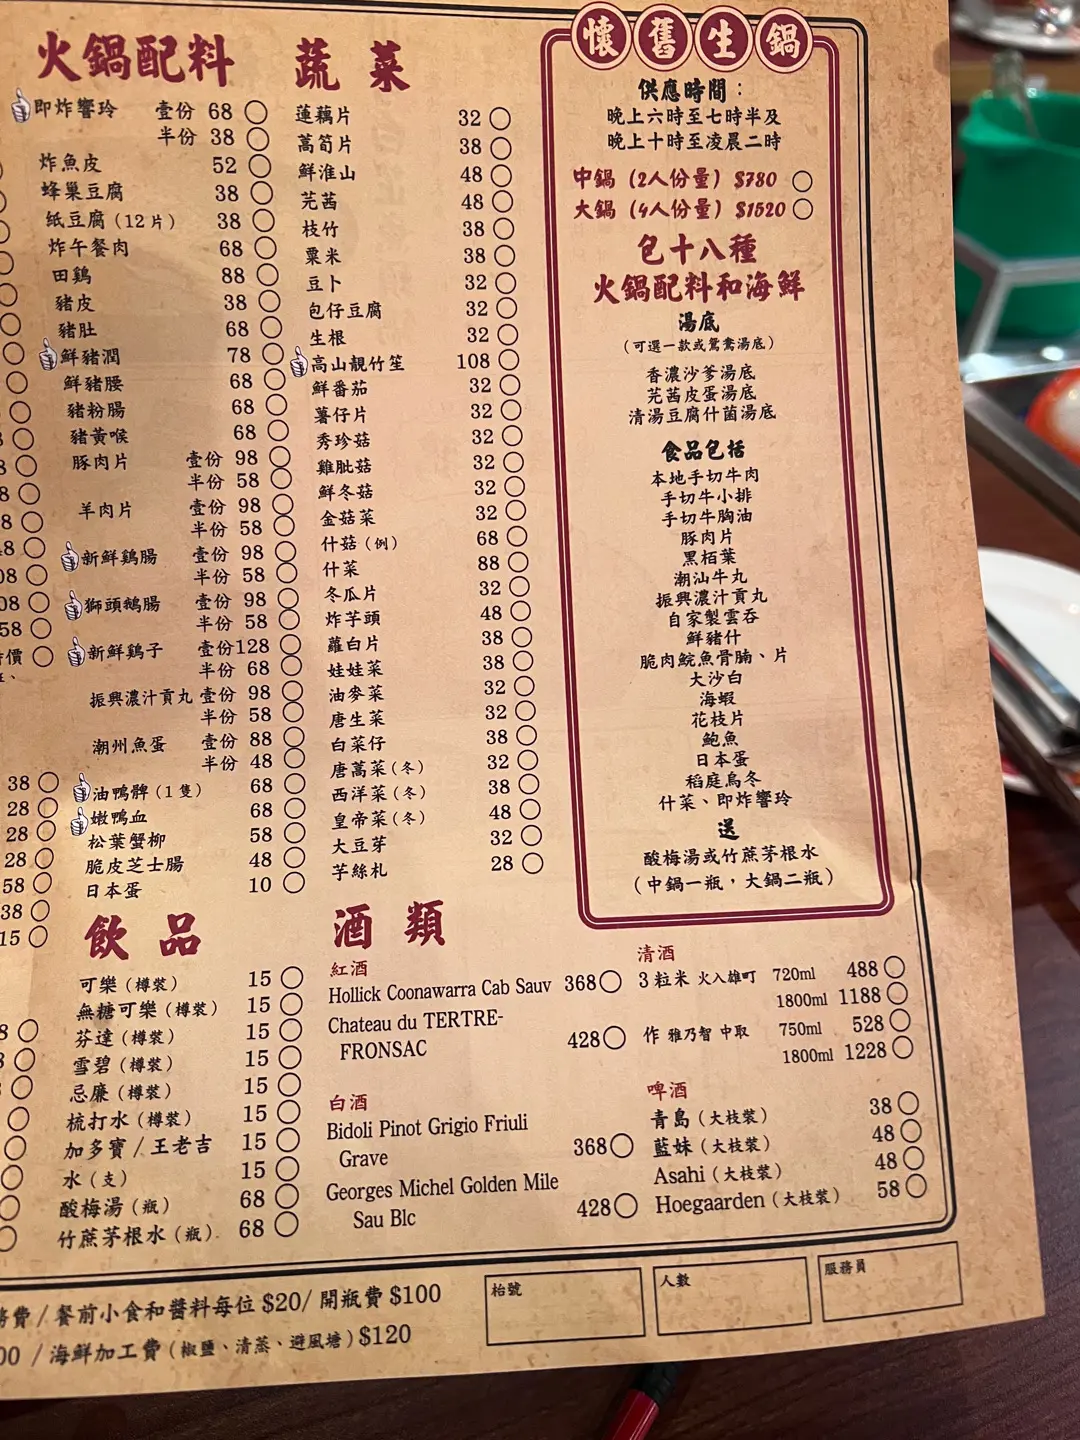 火鍋配料
即炸響玲 壹份 68
半份 38
炸魚皮 52
蜂巢豆腐 38
纸豆腐(12片) 38
炸午餐肉 68
田鷄 88
豬皮 38
豬肚 68
鮮豬潤 78
鮮豬腰 68
豬粉腸 68
豬黃喉 68
豚肉片 壹份 98
半份 58
羊肉片 壹份 98
半份 58
新鮮鷄腸 壹份 98
半份 58
獅頭鵝腸 壹份 98
半份 58
新鮮鷄子 壹份 128
半份 68
振興濃汁貢丸 壹份 98
半份 58
潮州魚蛋 壹份 88
半份 48
油鴨髀(1隻) 68
嫩鴨血 68
松葉蟹柳 58
脆皮芝士腸 48
日本蛋 10
蔬菜
蓮藕片 32
萵筍片 38
鮮淮山 48
芫茜 48
枝竹 38
粟米 38
豆卜 32
包仔豆腐 32
生根 32
高山靚竹笙 108
鮮番茄 32
薯仔片 32
秀珍菇 32
雞肶菇 32
鮮冬菇 32
金菇菜 32
什菇(例) 68
什菜 88
冬瓜片 32
炸芋頭 48
蘿白片 38
娃娃菜 38
油麥菜 32
唐生菜 32
白菜仔 38
唐萵菜(冬) 32
西洋菜(冬) 38
皇帝菜(冬) 48
大豆芽 32
芋絲札 28
懷舊生鍋
供應時間：
晚上六時至七時半及
晚上十時至凌晨二時
中鍋(2人份量) $780
大鍋(4人份量) $1520
包十八種
火鍋配料和海鮮
湯底
(可選一款或鴛鴦湯底)
香濃沙爹湯底
芫茜皮蛋湯底
清湯豆腐什菌湯底
食品包括
本地手切牛肉
手切牛小排
手切牛胸油
豚肉片
黑栢葉
潮汕牛丸
振興濃汁貢丸
自家製雲吞
鮮豬什
脆肉鯇魚骨腩、片
大沙白
海蝦
花枝片
鮑魚
日本蛋
稻庭烏冬
什菜、即炸響玲
送
酸梅湯或竹蔗茅根水
(中鍋一瓶，大鍋二瓶)
飲品
可樂(樽裝) 15
無糖可樂(樽裝) 15
芬達(樽裝) 15
雪碧(樽裝) 15
忌廉(樽裝) 15
梳打水(樽裝) 15
加多寶/王老吉 15
水(支) 15
酸梅湯(瓶) 68
竹蔗茅根水(瓶) 68
酒類
紅酒
Hollick Coonawarra Cab Sauv 368
Chateau du TERTRE-
FRONSAC 428
白酒
Bidoli Pinot Grigio Friuli
Grave 368
Georges Michel Golden Mile
Sau Blc 428
清酒
3粒米 火入雄町 720ml 488
1800ml 1188
作 雅乃智 中取 750ml 528
1800ml 1228
啤酒
青島(大枝裝) 38
藍妹(大枝裝) 48
Asahi(大枝裝) 48
Hoegaarden(大枝裝) 58
務費/餐前小食和醬料每位$20/開瓶費$100
00/海鮮加工費(椒鹽、清蒸、避風塘)$120
枱號
人數
服務員